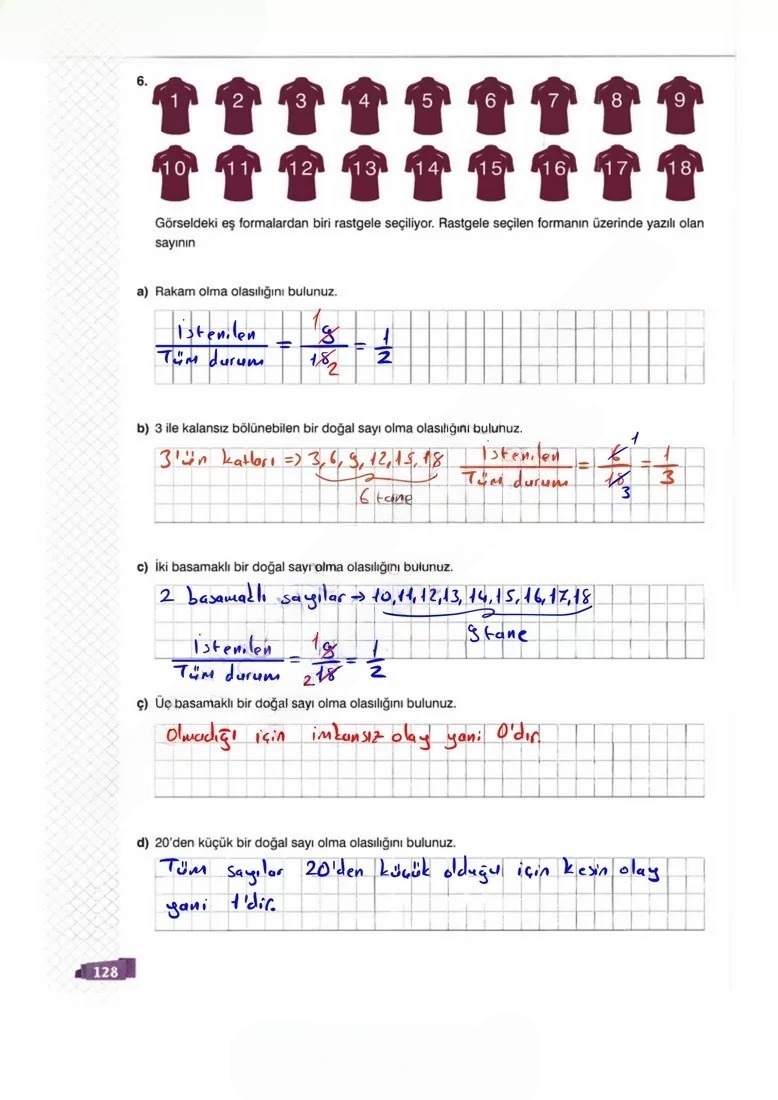 6.
1 2 3 4 5 6 7 8 9
10 11 12 13 14 15 16 17 18
Görseldeki eş formalardan biri rastgele seçiliyor. Rastgele seçilen formanın üzerinde yazılı olan
sayının
a) Rakam olma olasılığını bulunuz.
İstenilen / Tüm durum = 9 1 / 18 2 = 1/2
b) 3 ile kalansız bölünebilen bir doğal sayı olma olasılığını bulunuz.
3'ün katları => 3, 6, 9, 12, 15, 18 İstenilen / Tüm durum = 6 1 / 18 3 = 1/3
6 tane
c) İki basamaklı bir doğal sayı olma olasılığını bulunuz.
2 basamaklı sayılar → 10, 11, 12, 13, 14, 15, 16, 17, 18
9 tane
İstenilen / Tüm durum = 1 9 / 2 18 = 1/2
ç) Üç basamaklı bir doğal sayı olma olasılığını bulunuz.
Olmadığı için imkansız olay yani 0'dır.
d) 20'den küçük bir doğal sayı olma olasılığını bulunuz.
Tüm sayılar 20'den küçük olduğu için kesin olay
yani 1'dir.
128